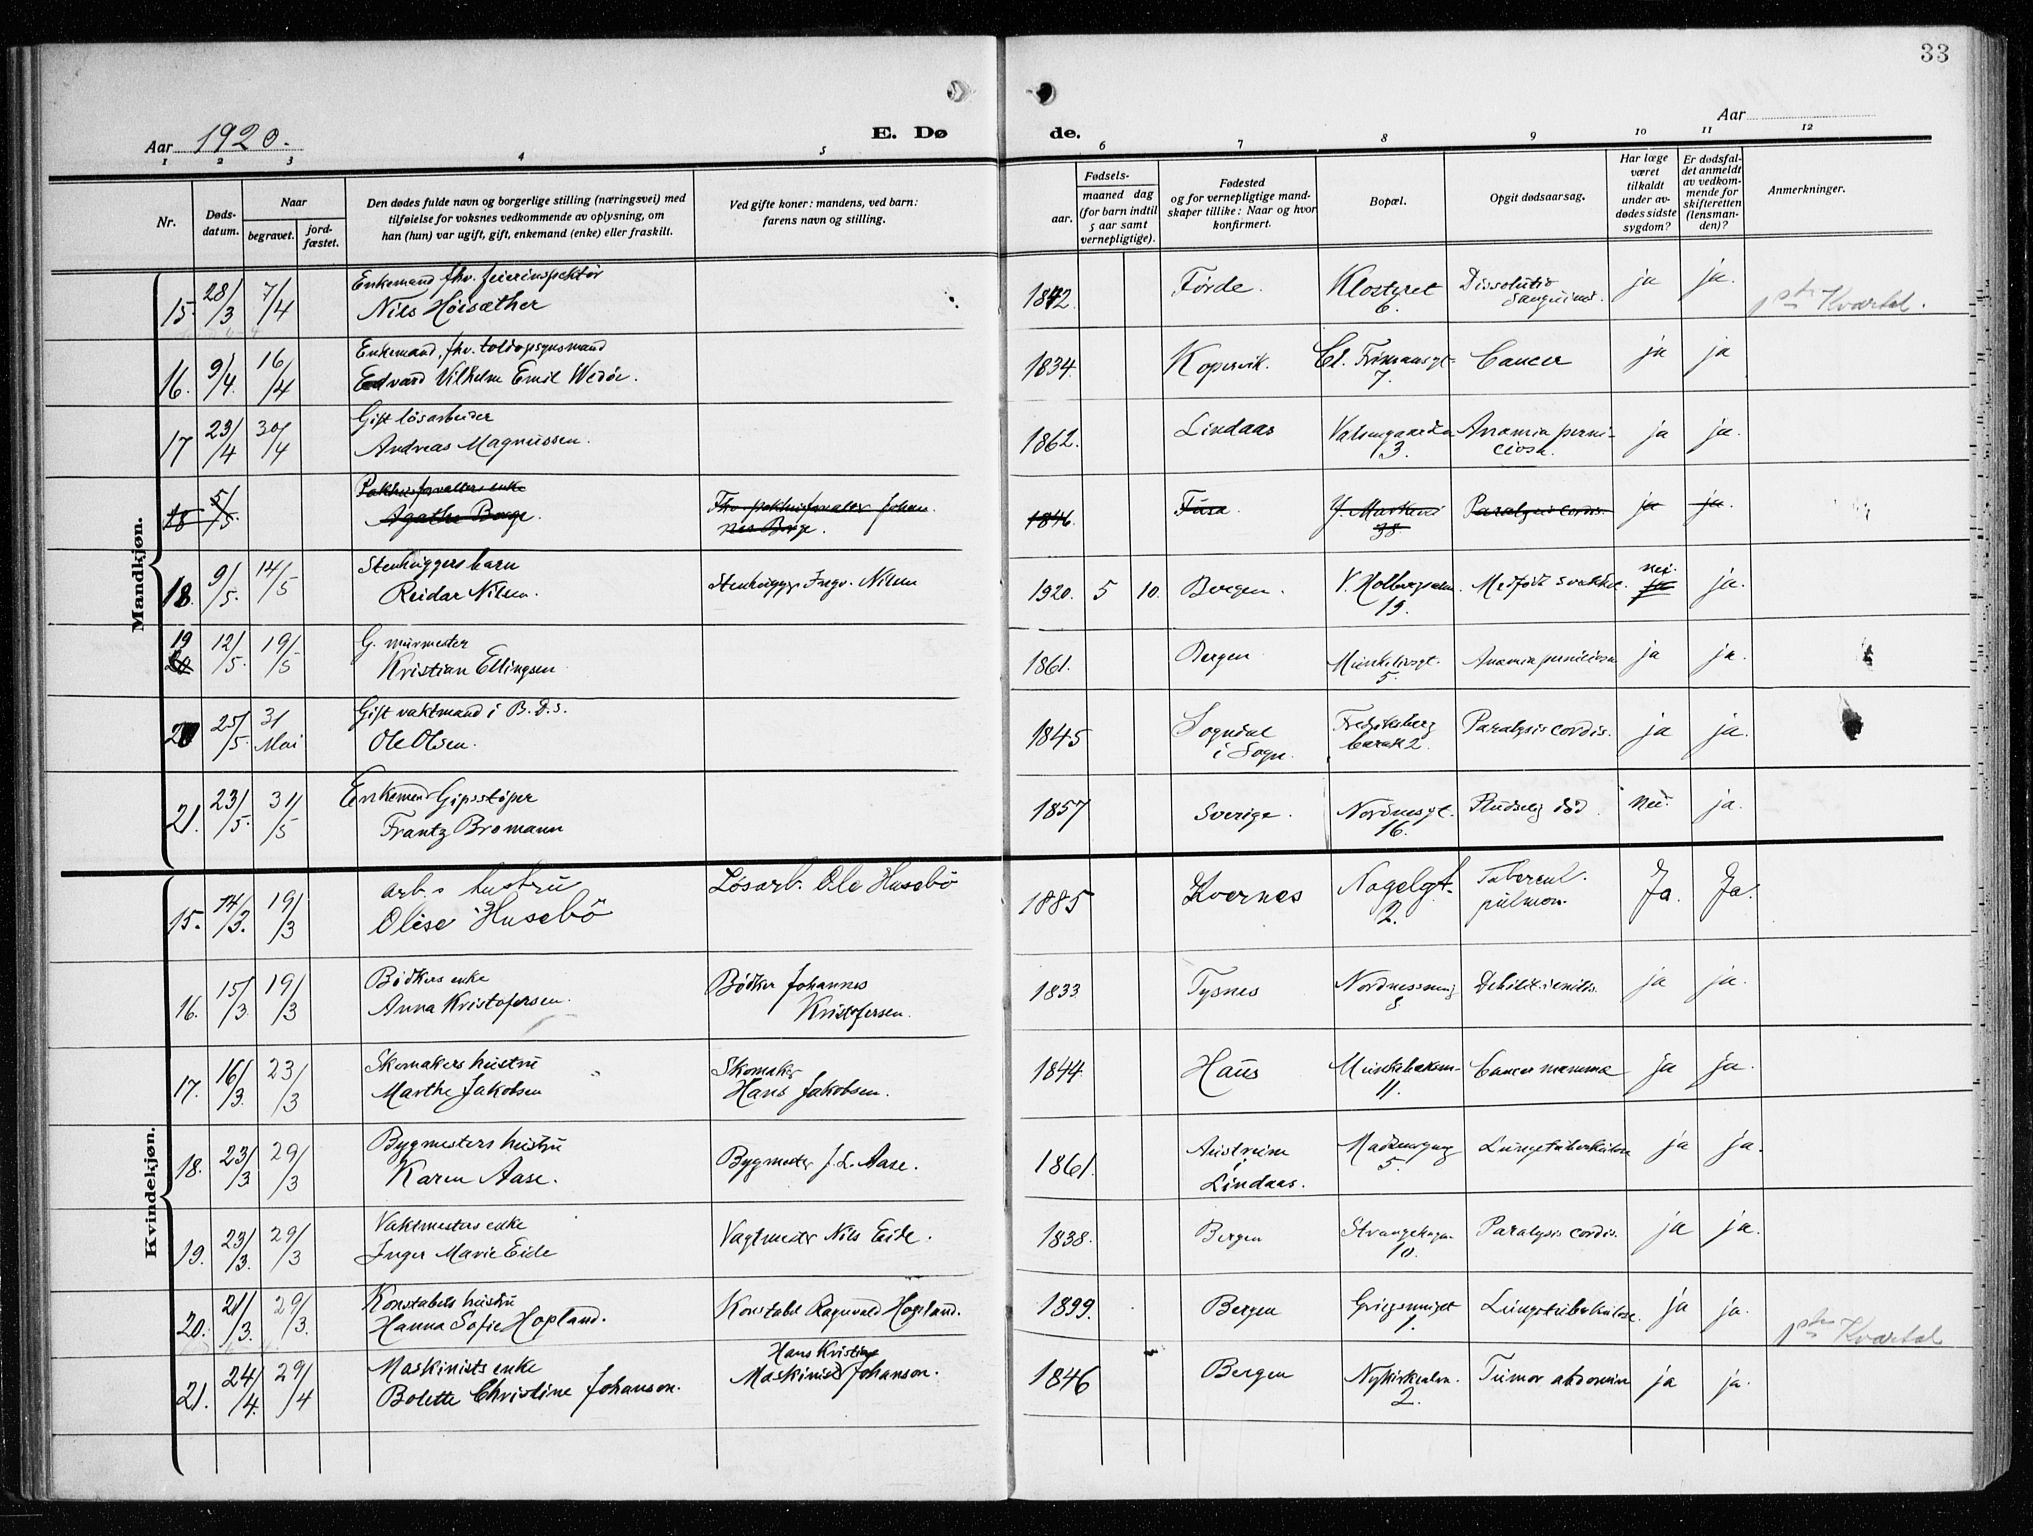 33
Aar 1920.
E. Dø
de.
Aar
1 2 3 4 5 6 7 8 9 10 11 12
Nr.
Døds-
datum.
Naar
begravet.
jord-
fæstet.
Den dødes fulde navn og borgerlige stilling (næringsvei) med
tilføielse for voksnes vedkommende av oplysning, om
han (hun) var ugift, gift, enkemand (enke) eller fraskilt.
Ved gifte koner: mandens, ved barn:
farens navn og stilling.
Fødsels-
aar.
maaned dag
(for barn indtil
5 aar samt
vernepligtige).
Fødested
og for vernepligtige mand-
skaper tillike: Naar og hvor
konfirmert.
Bopæl.
Opgit dødsaarsag.
Har læge
været
tilkaldt
under av-
dødes sidste
sygdom?
Er dødsfal-
det anmeldt
av vedkom-
mende for
skifteretten
(lensman-
den)?
Anmerkninger.
Mandkjøn.
15. 28/3 7/4 Enkemand fhv. feierinspektør
Nils Høisæther
1842. Førde. Klosteret 6. Dissolutio sanguinis. ja ja. 1ste Kvartal.
16. 9/4. 16/4 Enkemand, fhv. toldopsynsmand
Edvard Vilhelm Emil Wedøe.
1834. Kopervik. Cl. Frimansgt. 7. Cancer ja ja
17 23/4 30/4 Gift løsarbeider
Andreas Magnussen.
1862. Lindaas 3. Anæmia perni-
ciosa. ja ja.
18 5/5. Pakhusforvalters enke
Agathe Berge.
Fhv. pakhusforvalter Johan-
nes Berge.
1846. Fusa. 38. Paralysis cordis. ja ja.
18. 9/5. 14/5 Stenhuggers barn
Reidar Nilsen.
Stenhugger Ingv. Nilsen
1920. 5 10. Bergen. V. Holbergsalm. 19. Medfødt svakhet. nei. ja ja.
19 20 12/5. 19/5 G. murmester
Kristian Ellingsen
1861. Bergen Munkelivsgt. 5. Anæmia perniciosa ja ja.
20 25/5. 31 Mai Gift vaktmand i B. D. S.
Ole Olsen.
1845 Sogndal
i Sogn. Fredriksberg
barak 2. Paralysis cordis. ja ja.
21. 23/5. 31/5 Enkemand Gipsstøper
Frantz Bromann
1857 Sverige. Nordnesgt. 16. Pludselig død. Nei. ja.
Kvindekjøn.
15. 14/3. 19/3 arb.s hustru
Olise Husebö
Løsarb. Ole Husebö
1885 Kvernes Nagelgt. 2. Tubercul.
pulmon. Ja. Ja.
16. 15/3. 19/3 Bødkers enke
Anna Kristofersen.
Bødker Johannes
Kristofersen.
1833. Tysnes Nordnessmug 8 Debilit. senilis. ja ja.
17. 16/3. 23/3 Skomakers hustru
Marthe Jakobsen
Skomaker
Hans Jakobsen.
1844. Haus 11. Cancer mamma ja ja.
18. 23/3. 29/3 Bygmesters hustru
Karen Aase.
Bygmester J. L. Aase.
1861. Austreim
i
Lindaas. 5. Lungetuberkulose ja ja.
19. 23/3. 29/3 Vaktmesters enke
Inger Marie Eide
Vagtmester Nils Eide.
1838. Bergen Strangehagen 10. Paralysis cordis. ja ja.
20. 21/3. 29/3. Konstabels hustru
Hanna Sofie Hopland.
Konstabel Ragnvald Hopland.
1899. Bergen Griegsmuget 1. Lungetuberkulose. ja ja. 1ste Kvartal
21. 24/4. 29/4 Maskinists enke
Bolette Christine Johanson.
Hans Kristian
Maskinist Johanson.
1846 Bergen Nykirkealm. 2. Tumor abdomin ja ja.